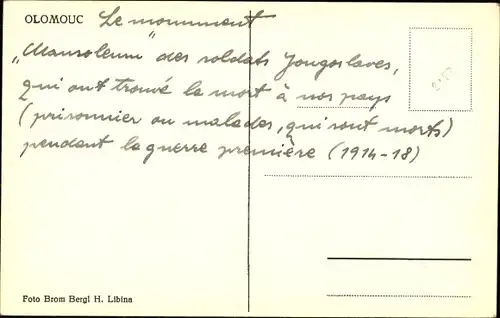 OLOMOUC Le monumment
„Mausoleum" des soldats Jougoslaves,
qui ont trouvé la mort à nos pays
(prisonnier ou malades, qui sont morts)
pendant la guerre première (1914-18)
Foto Brom Bergl H. Libina